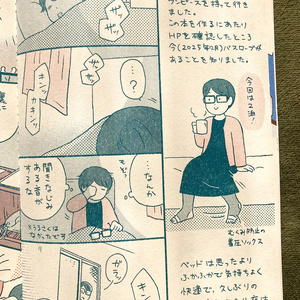 ワンピースを持って行き
ました。
この本を作るにあたり
HPを確認したところ
今(2025年2月)バスローブが
あることを知りました。
今回は2泊!
むくみ防止の
着圧ソックス
ベッドは思ったより
ふかふかで気持ちよく
快適で、久しぶりの
ザッ
ザッ
ザッ
ザッ
キンッ
カキンッ
…?
…なんか
でも…
聞きなじみ
ある音が
するな
※うるさくは
なかったです
キンッ
ガラッ